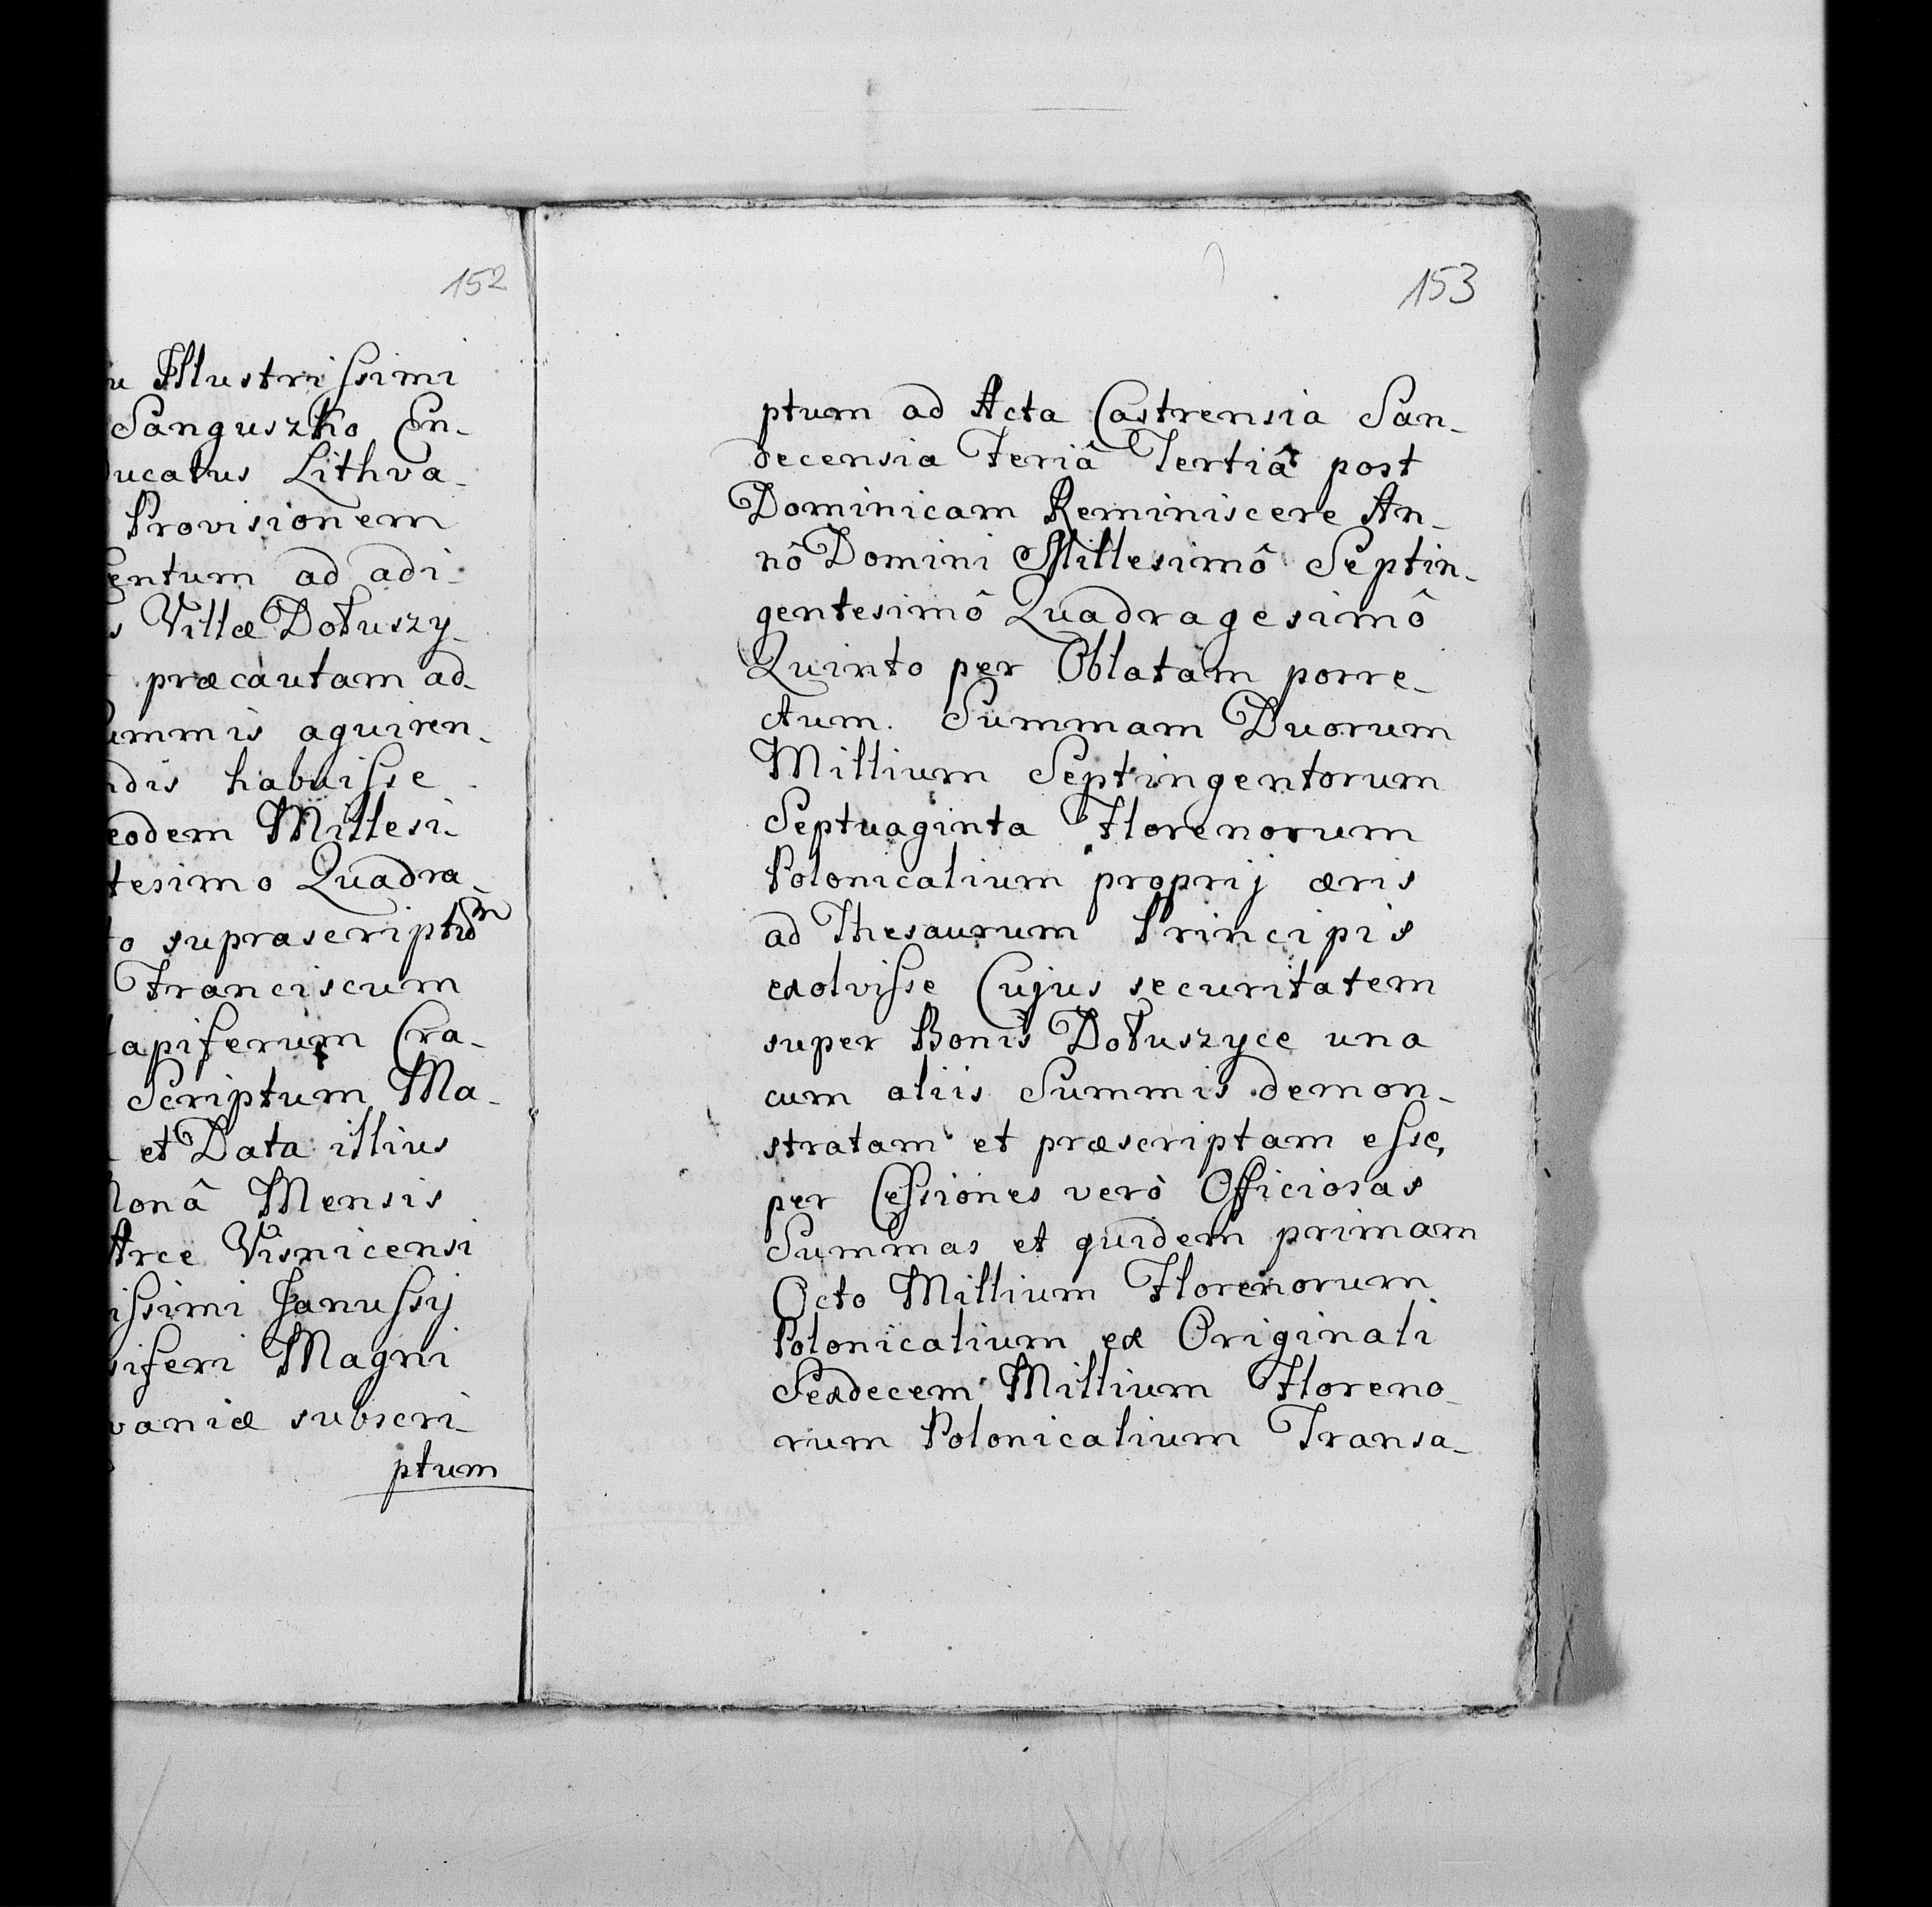 152
u Illustrissimi
Sanguszko En-
ducatus Lithva-
Provisionem
entum ad adi-
s Villæ Dołuszy-
præcautam ad-
ummis aquiren-
ndis habuisse
eodem Millesi-
tesimo Quadra-
to suprascriptum
Franciscum
apiferum Cra-
Scriptum Ma-
et Data illius
Nonâ Mensis
Arce Visnicensi
issimi Janussij
siferi Magni
vaniæ subscri-
ptum
153
ptum ad Acta Castrensia San-
decensia Feriâ Tertiâ post
Dominicam Reminiscere An-
nô Domini Millesimô Septin-
gentesimô Quadragesimô
Quinto per Oblatam porre-
ctum. Summam Duorum
Millium Septingentorum
Septuaginta Florenorum
Polonicalium proprij æris
ad Thesaurum Principis
exolvisse Cujus securitatem
super Bonis Dołuszyce una
cum aliis Summis demon-
stratam et præscriptam esse,
per Cessiones verò Officiosas
Summas et quidem primam
Octo Millium Florenorum
Polonicalium ex Originali
Sexdecem Millium Floreno-
rum Polonicalium Transa-